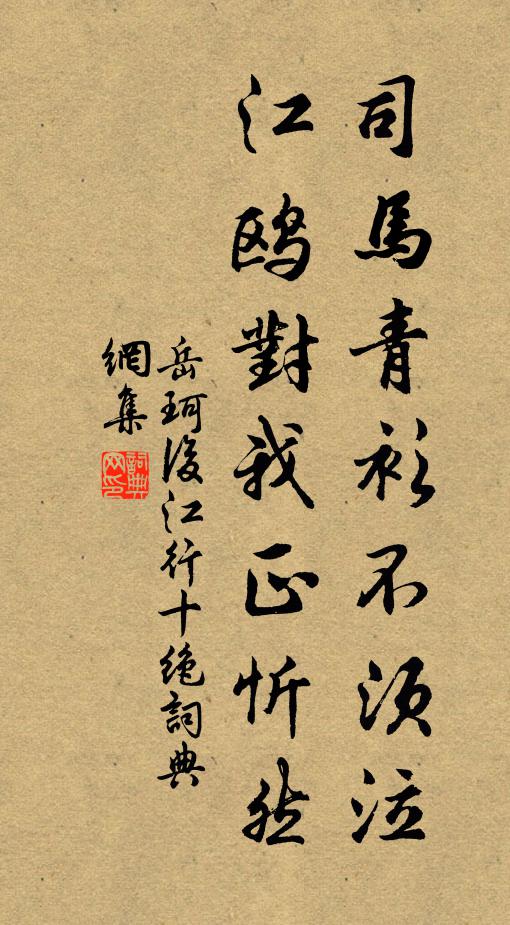 司馬青衫不須泣
江鸥對我正忻然
岳珂後江行十绝詞典
網集
詞典網印